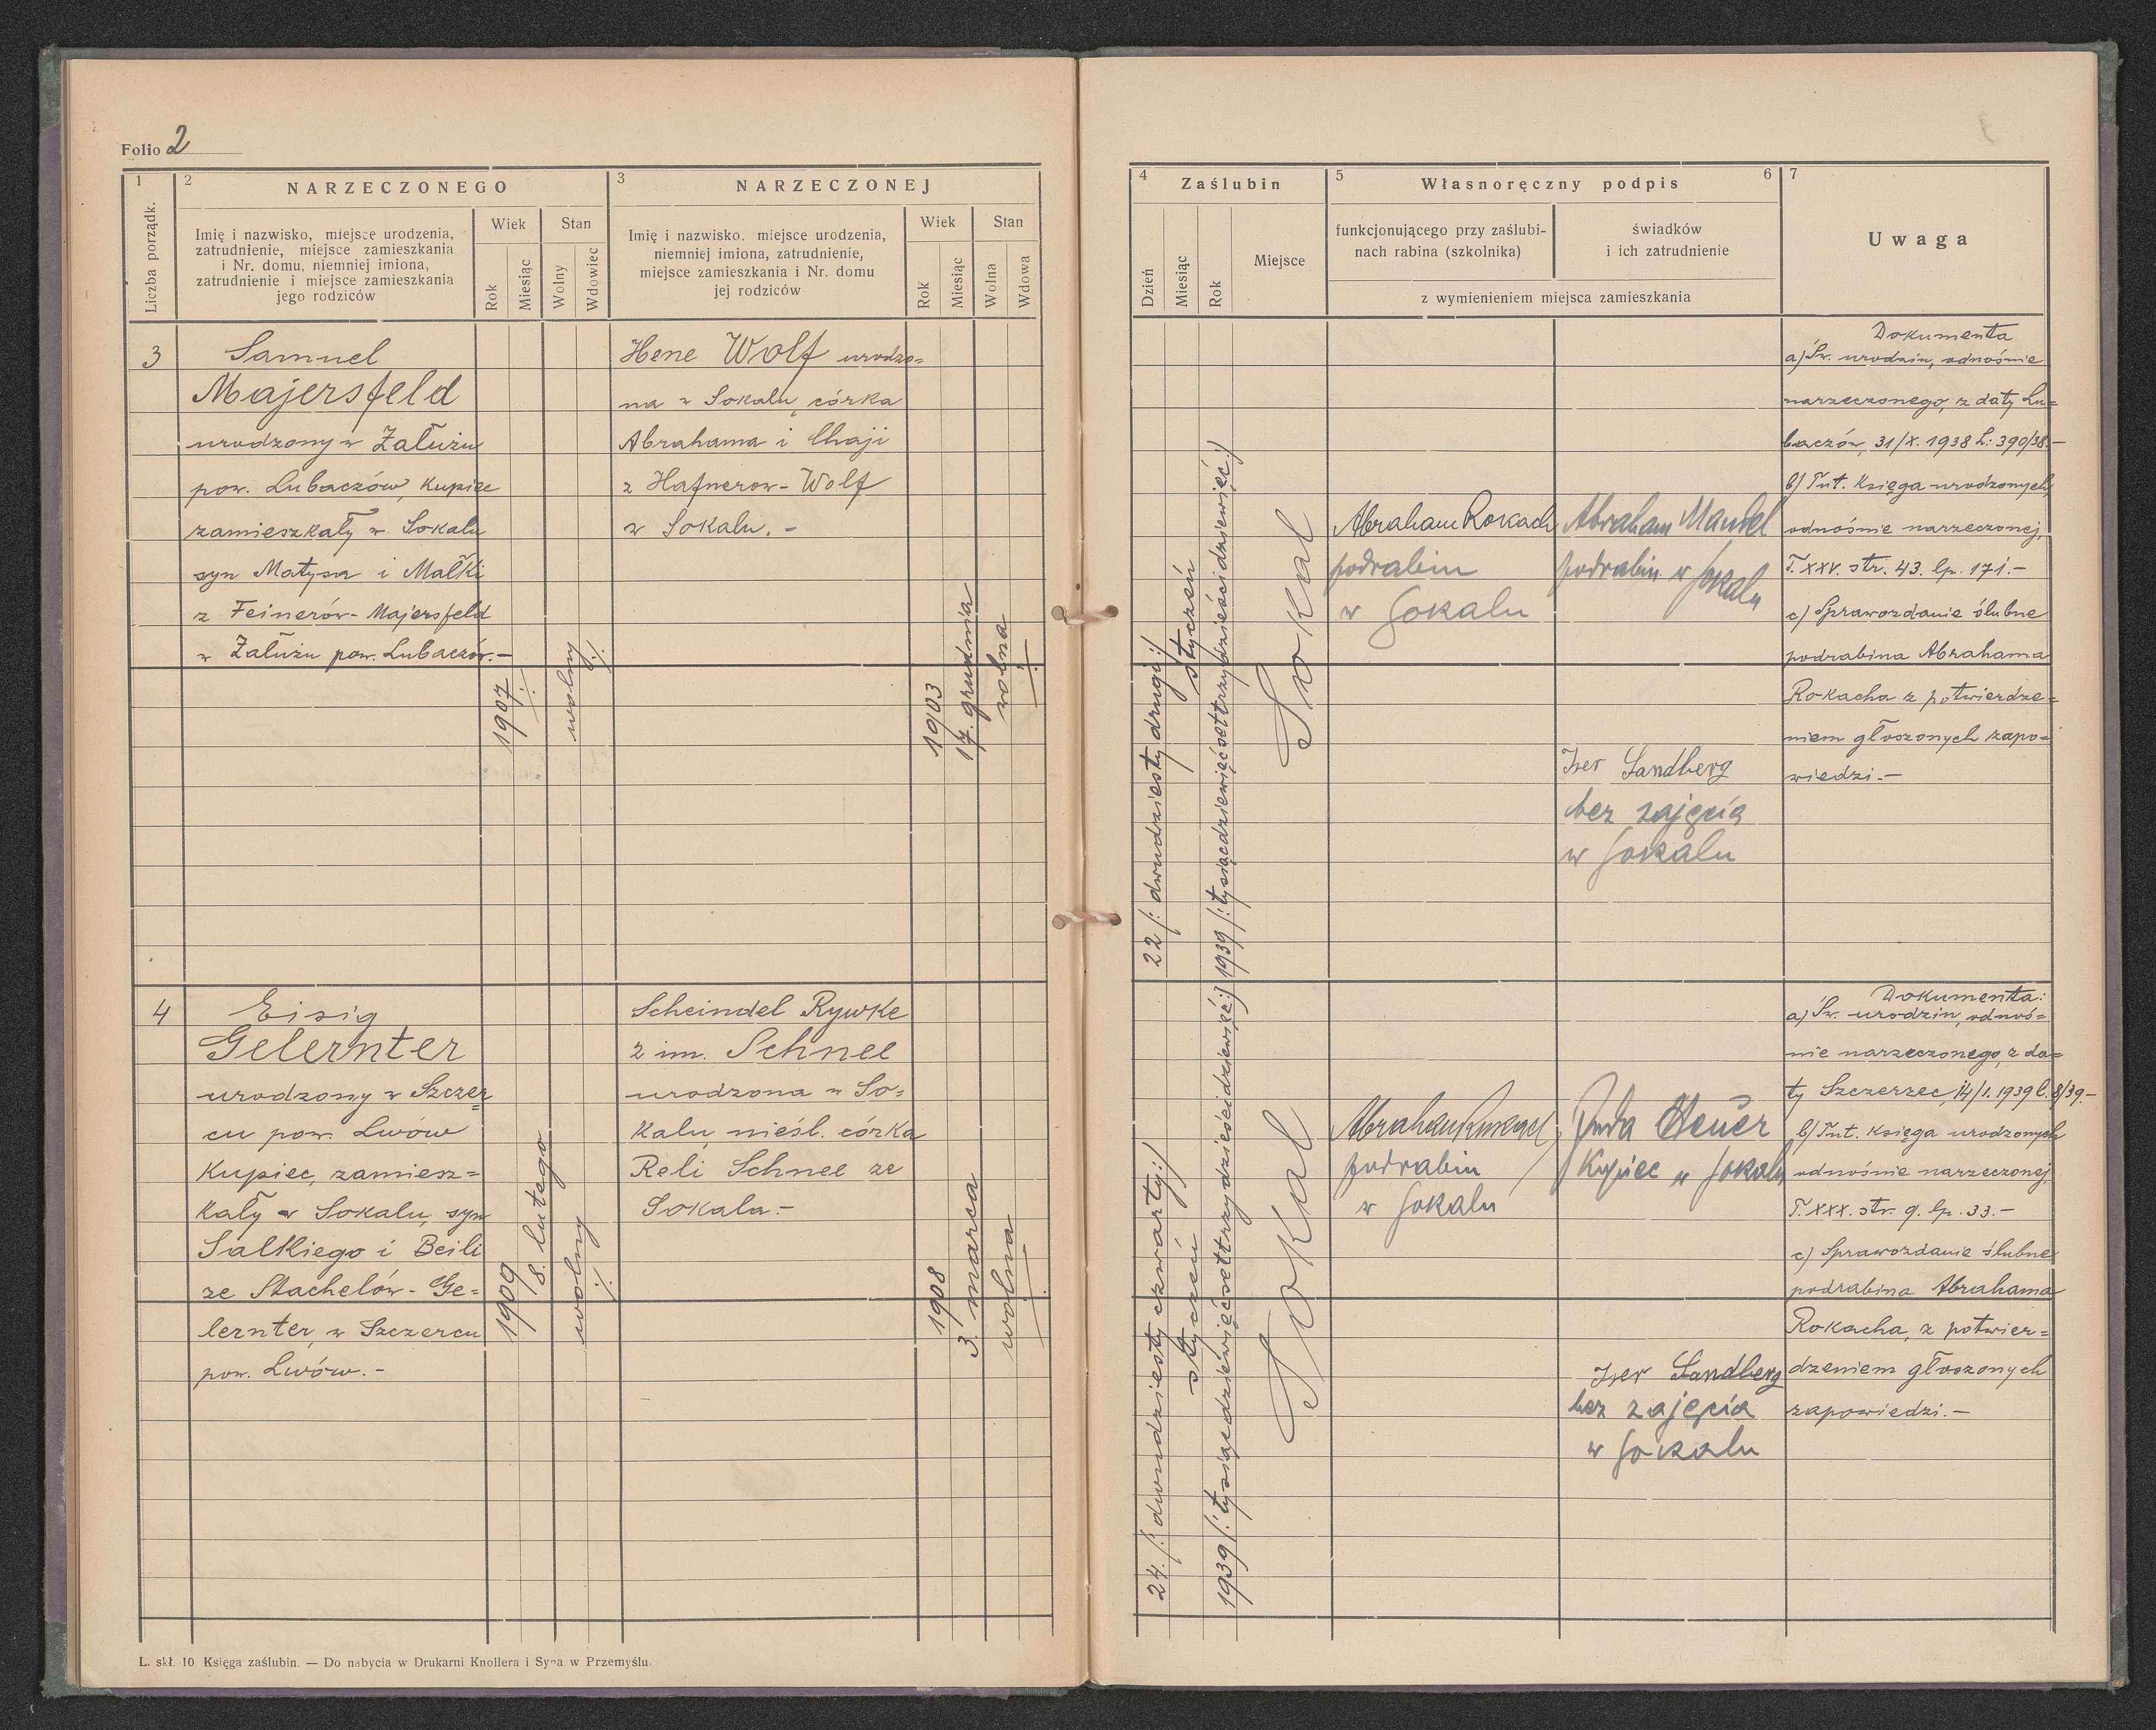 Folio 2
1
Liczba porządk.
2
NARZECZONEGO
Imię i nazwisko, miejsce urodzenia,
zatrudnienie, miejsce zamieszkania
i Nr. domu, niemniej imiona,
zatrudnienie i miejsce zamieszkania
jego rodziców
Wiek
Rok
Miesiąc
Stan
Wolny
Wdowiec
3
NARZECZONEJ
Imię i nazwisko, miejsce urodzenia,
niemniej imiona, zatrudnienie,
miejsce zamieszkania i Nr. domu
jej rodziców
Wiek
Rok
Miesiąc
Stan
Wolna
Wdowa
3
Samuel
Majersfeld
urodzony w Załużu
pow. Lubaczów, kupiec
zamieszkały w Sokalu
syn Matysa i Małki
z Feinerów - Majersfeld
w Załużu pow. Lubaczów.-
1907
wolny
Hene Wolf urodzo=
na w Sokalu, córka
Abrahama i Chaji
z Hafnerow - Wolf
w Sokalu.-
1903
17. grudnia
wolna
4
Eisig
Gelernter
urodzony w Szczer=
cu pow. Lwów
Kupiec, zamiesz=
kały w Sokalu, syn
Salkiego i Beili
ze Stachelów - Ge=
lernter, w Szczercu
pow. Lwów.-
1909
8. lutego
wolny
Scheindel Rywke
2 im. Schnee
urodzona w So=
kalu, nieśl. córka
Reli Schnee ze
Sokala.-
1908
3. marca
wolna
L. skł. 10. Księga zaślubin. — Do nabycia w Drukarni Knollera i Syna w Przemyślu.
4
Zaślubin
Dzień
Miesiąc
Rok
Miejsce
5
Własnoręczny podpis
6
funkcjonującego przy zaślubi-
nach rabina (szkolnika)
świadków
i ich zatrudnienie
z wymienieniem miejsca zamieszkania
7
Uwaga
22 /: dwudziesty drugi :/
styczeń
1939 /: tysiącdziewięćsettrzydzieścidziewięć :/
Sokal
Abraham Rokach
podrabin
w Sokalu
Abraham Mandel
podrabin w Sokalu
Iser Sandberg
bez zajęcia
w Sokalu
Dokumenta
a) Św. urodzin, odnośnie
narzeczonego, z daty Lu=
baczów, 31/X. 1938 L: 390/38.-
b) Tut. Księga urodzonych,
odnośnie narzeczonej,
T. XXV. str. 43. lp. 171.-
c) Sprawozdanie ślubne
podrabina Abrahama
Rokacha z potwierdze=
niem głoszonych zapo=
wiedzi.-
24. /: dwudziesty czwarty :/
styczeń
1939 /: tysiącdziewięćsettrzydzieścidziewięć :/
Sokal
Abraham Rokach
podrabin
w Sokalu
Juda
Kupiec w Sokalu
Iser Sandberg
bez zajęcia
w Sokalu
Dokumenta:
a) Św. urodzin, odnoś=
nie narzeczonego, z da=
ty Szczerzec, 14/1. 1939 l. 8/39.-
b) Tut. Księga urodzonych
odnośnie narzeczonej,
T. XXX. str. 9. lp. 33.-
c) Sprawozdanie ślubne
podrabina Abrahama
Rokacha, z potwier=
dzeniem głoszonych
zapowiedzi.-